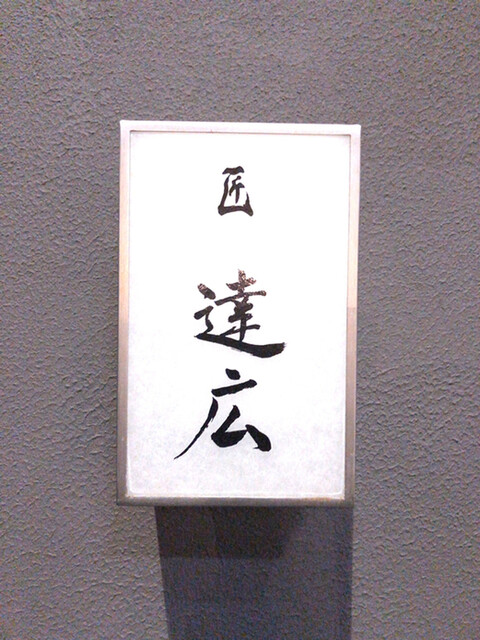 匠
達広